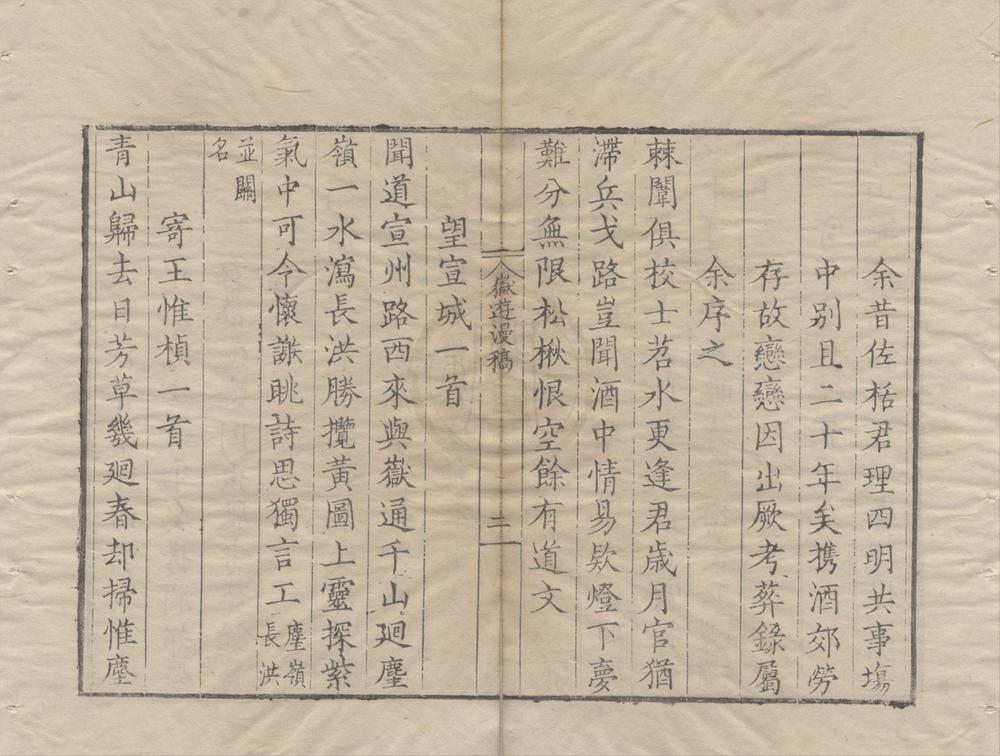 余昔佐栝君理四明共事塲
中别且二十年矣携酒郊勞
存故戀戀因出厥考葬錄屬
余序之
棘闈俱校士苕水更逢君歳月官猶
滯兵戈路豈聞酒中情易欵燈下夢
難分無限松楸恨空餘有道文
嶽遊漫稿
二
望宣城一首
聞道宣州路西來與嶽通千山廻塵
嶺一水瀉長洪勝攬黃圖上靈探紫
氣中可今懷謝眺詩思獨言工塵嶺長洪
並關名
寄王惟楨一首
青山歸去日芳草幾廻春却掃惟塵